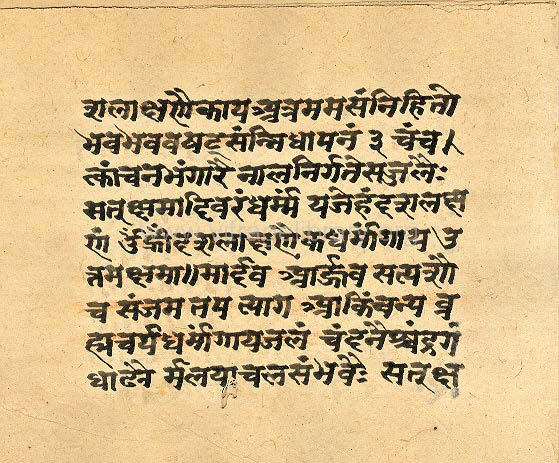 शलाक्षणैकाय अत्रममसंनिहितो
भवभववषट्संन्निधापनं ३ चंच।
त्कांचनभंगारै नालनिर्गतेसजलैः
सत्क्षमादिवरंधर्म्म यजेहंदशलक्ष
णं उँह्रींदशलाक्षणैकधर्मांगाय उ
तमक्षमा॥मार्दव आर्ज्जव सत्यशौ
च संजम तप त्याग आकिंचन्य ब्र
ह्मचर्यधर्मांगायजलं चंदनै
र्मलयाचलसंभवैः सत्क्ष